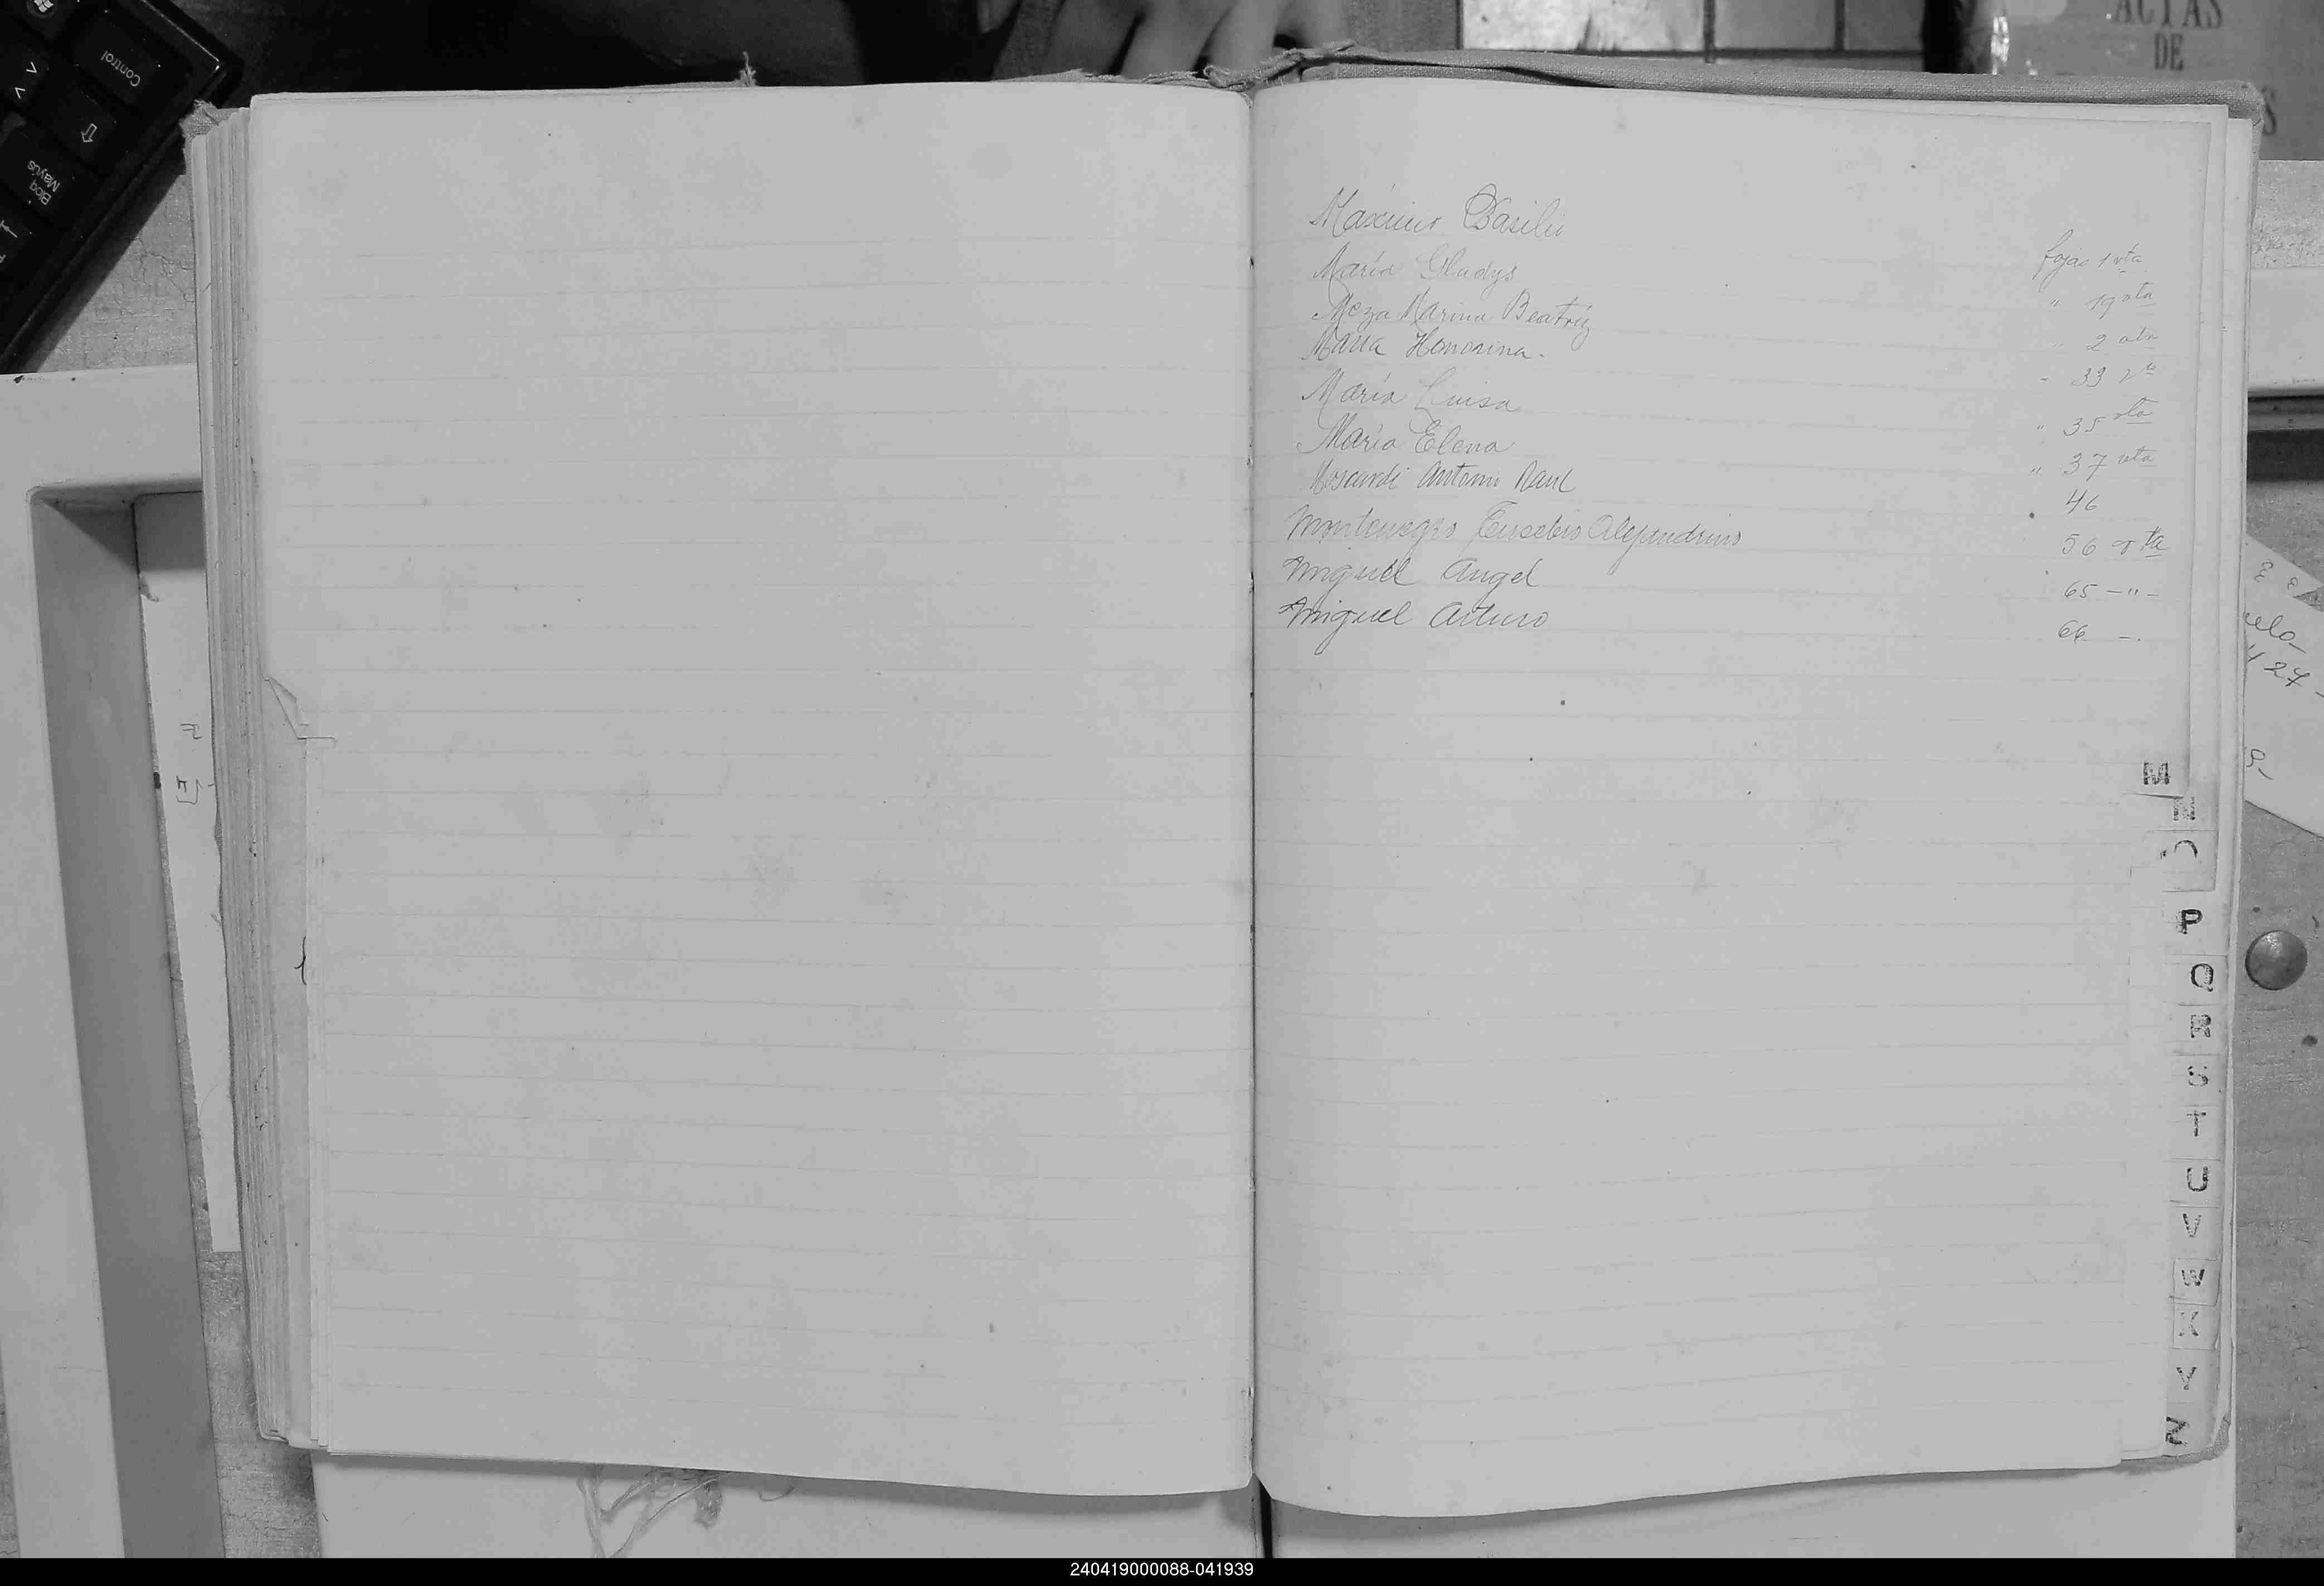 Control
Bloq
Mayús
ACTAS
DE
Maximo Basilio fojas 1 vta
María Gladys " 19 vta
Meza Marina Beatríz " 2 vta
María Honorina. " 33 vta
María Luisa " 35 vta
María Elena " 37 vta
Antonio Raul 46
Montenegro Eusebio Alejandrino 56 vta
Miguel Angel 65 - " -
Miguel Arturo 66 - .
M
N
O
P
Q
R
S
T
U
V
W
X
Y
Z
240419000088-041939